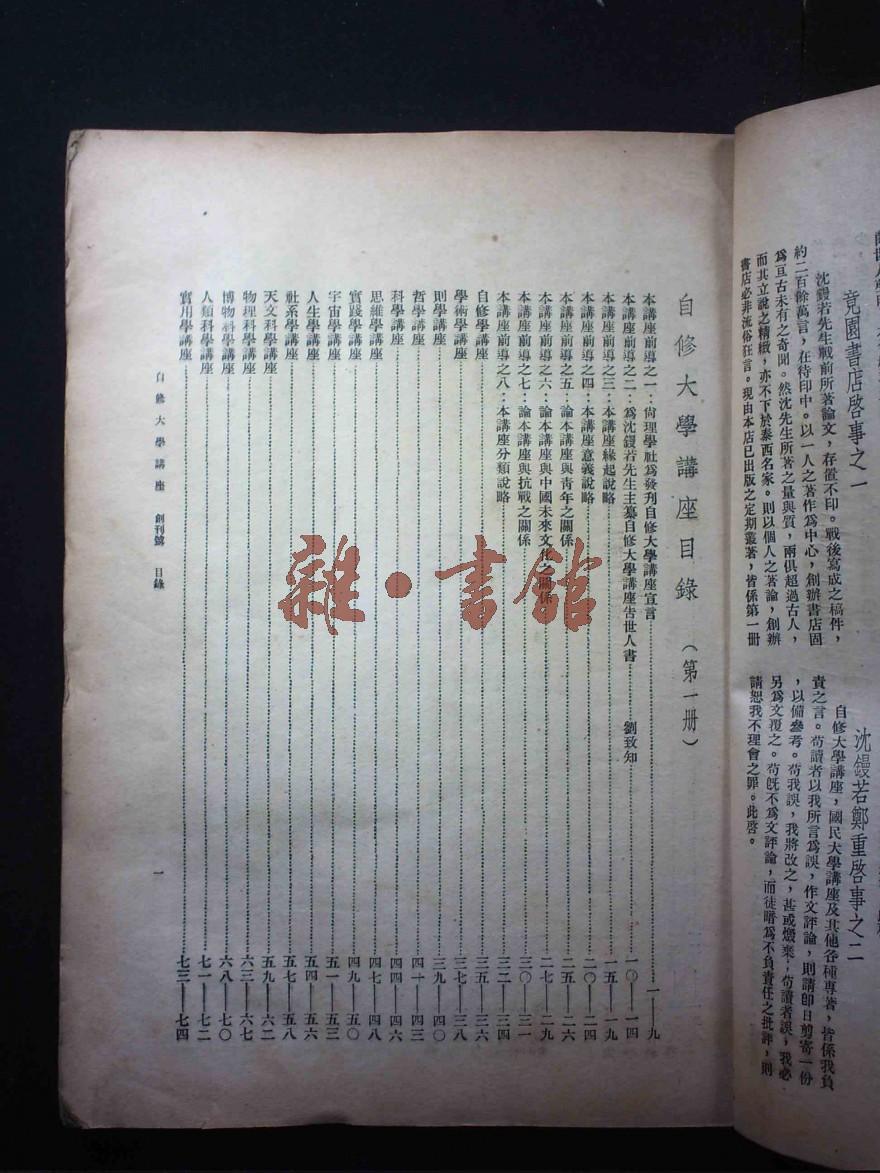 竟園書店啓事之一
沈鏝若先生戰前所著論文，存置不印。戰後寫成之稿件，
約二百餘萬言，在待印中。以一人之著作爲中心，創辦書店固
爲亘古未有之奇聞。然沈先生所著之量與質，兩俱超過古人，
而其立說之精緻，亦不下於泰西名家。則以個人之著論，創辦
書店必非流俗狂言。現由本店已出版之定期叢著，皆係第一册
沈鏝若鄭重啓事之二
自修大學講座，國民大學講座及其他各種專著，皆係我負
責之言。苟讀者以我所言爲誤，作文評論，則請卽日剪寄一份
，以備參考。苟我誤，我將改之，甚或燬棄；苟讀者誤，我必
另爲文覆之。苟旣不爲文評論，而徒暗爲不負責任之批評，則
請恕我不理會之罪。此啓。
自修大學講座目錄（第一册）
本講座前導之一：尙理學社爲發刋自修大學講座宣言 一——九
本講座前導之二：爲沈鏝若先生主纂自修大學講座告世人書 劉致知 一〇——一四
本講座前導之三：本講座緣起說略 一五——一九
本講座前導之四：本講座意義說略 二〇——二四
本講座前導之五：論本講座與靑年之關係 二五——二六
本講座前導之六：論本講座與中國未來文化之關係 二七——二九
本講座前導之七：論本講座與抗戰之關係 三〇——三一
本講座前導之八：本講座分類說略 三二——三四
自修學講座 三五——三六
學術學講座 三七——三八
則學講座 三九——四〇
哲學講座 四十——四三
科學講座 四四——四六
思維學講座 四七——四八
實踐學講座 四九——五〇
宇宙學講座 五一——五三
人生學講座 五四——五六
社系學講座 五七——五八
天文科學講座 五九——六二
物理科學講座 六三——六七
博物科學講座 六八——七〇
人類科學講座 七一——七二
實用學講座 七三——七四
自修大學講座 創刊號 目錄
一
雜·書館